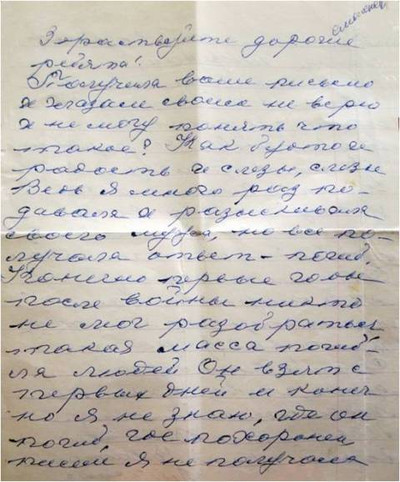 Здраствуйте дорогие
ребята!
Получила ваше письмо
и глазам своим не верю
и не могу понять что
такое? Как будто и
радость и слезы, слезы
Ведь я много раз по-
давала и разыскивала
своего мужа, но все по-
лучала ответ - погиб.
Конечно первые годы
после войны никто
не мог разобраться
такая масса погиб-
ла людей Он взят с
первых дней и конеч
но я не знаю, где он
погиб, где похоронен
писем я не получала